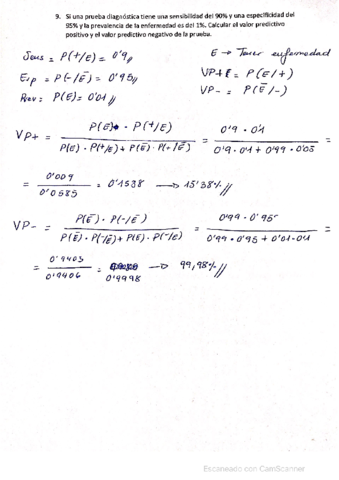 9. Si una prueba diagnóstica tiene una sensibilidad del 90% y una especificidad del
95% y la prevalencia de la enfermedad es del 1%. Calcular el valor predictivo
positivo y el valor predictivo negativo de la prueba.
Sens = P(+/E) = 0'9 E → Tener enfermedad
Esp = P(-/E̅) = 0'95 VP+ = P(E/+)
Prev = P(E) = 0'01 VP- = P(E̅/-)
VP+ = P(E) · P(+/E) / P(E) · P(+/E) + P(E̅) · P(+/E̅) = 0'9 · 0'1 / 0'9 · 0'1 + 0'99 · 0'05 =
= 0'009 / 0'0585 = 0'1538 → 15'38%
VP- = P(E̅) · P(-/E̅) / P(E̅) · P(-/E̅) + P(E) · P(-/E) = 0'99 · 0'95 / 0'99 · 0'95 + 0'01 · 0'1 =
= 0'9405 / 0'9406 = 0'9998 → 99,98%
Escaneado con CamScanner